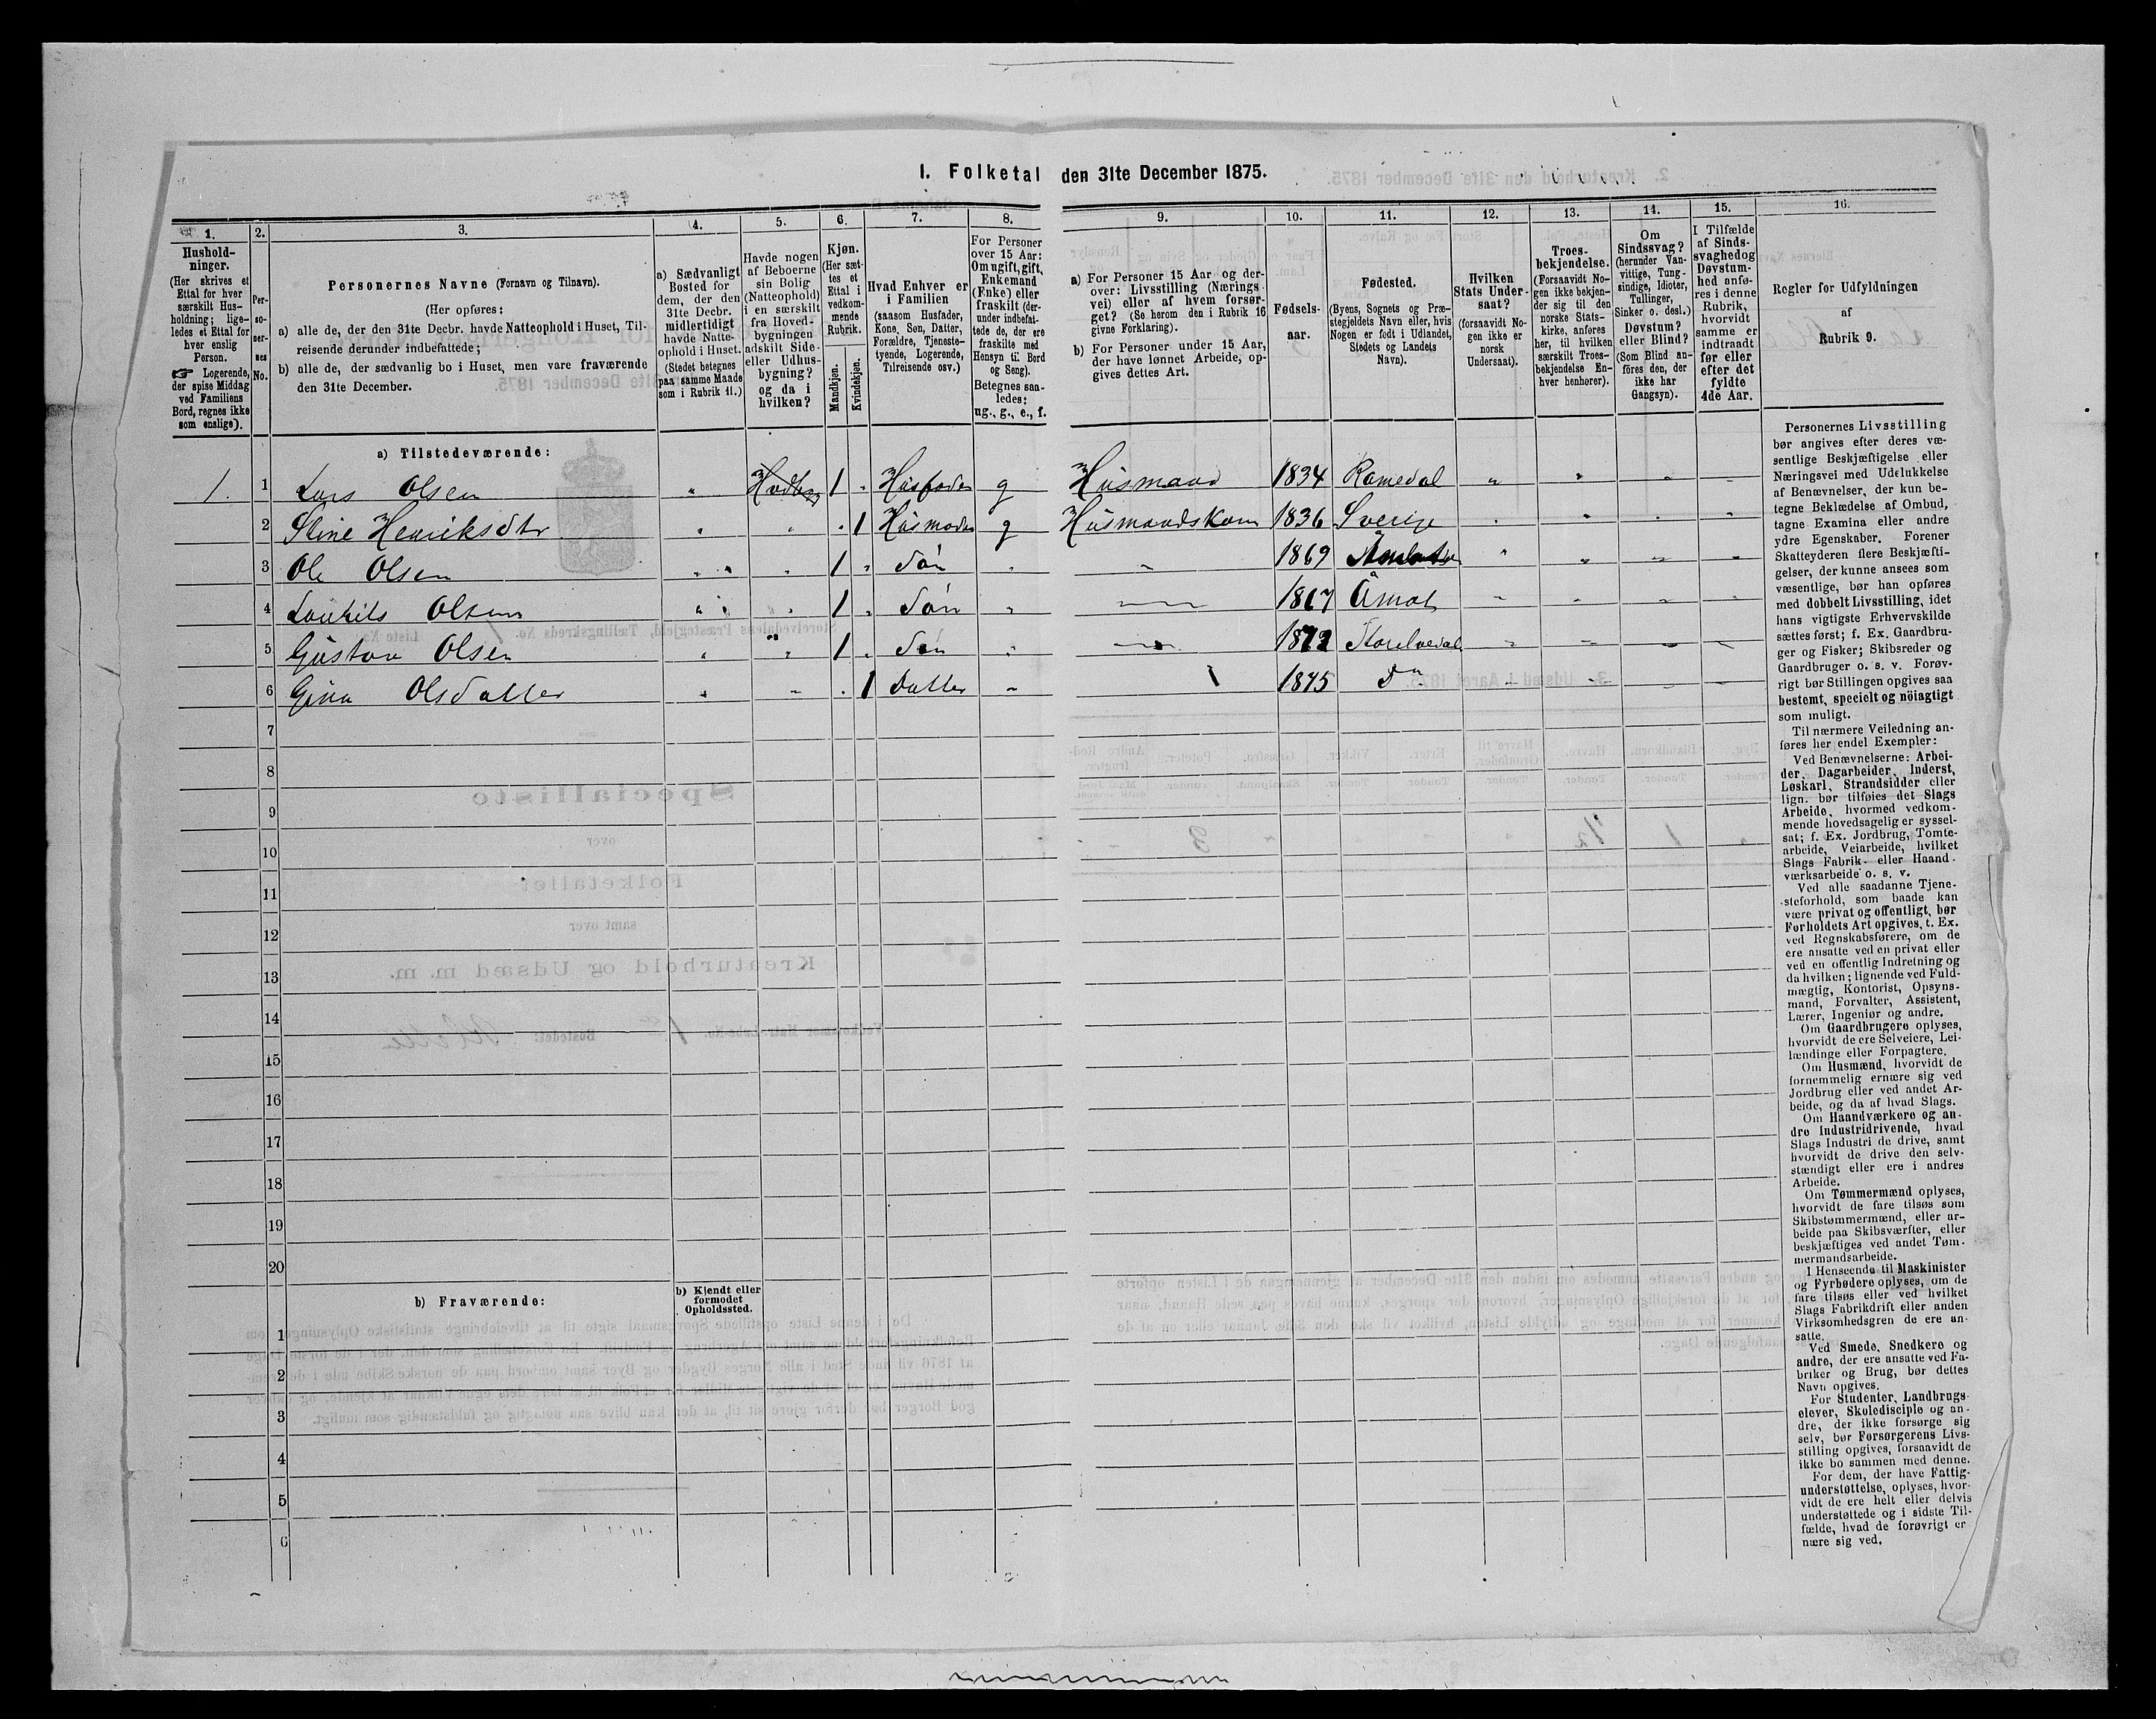 I. Folketal den 31te December 1875.
1. 2. 3. 4. 5. 6. 7. 8. 9. 10. 11. 12. 13. 14. 15. 16.
Hushold-
ninger.
(Her skrives et
Ettal for hver
særskilt Hus-
holdning; lige-
ledes et Ettal for
hver enslig
Person.
☞ Logerende,
der spise Middag
ved Familiens
Bord, regnes ikke
som enslige).
Per-
so-
ner-
nes
No.
Personernes Navne (Fornavn og Tilnavn).
(Her opføres:
a) alle de, der den 31te Decbr. havde Natteophold i Huset, Til-
reisende derunder indbefattede;
b) alle de, der sædvanlig bo i Huset, men vare fraværende
den 31te December.
a) Sædvanligt
Bosted for
dem, der den
31te Decbr.
midlertidigt
havde Natte-
ophold i Huset.
(Stedet betegnes
paa samme Maade
som i Rubrik 11.)
Havde nogen
af Beboerne
sin Bolig
(Natteophold)
i en særskilt
fra Hoved-
bygningen
adskilt Side-
eller Udhus-
bygning?
og da i
hvilken?
Kjøn.
(Her sæt-
tes et
Ettal i
vedkom-
mende
Rubrik.
Mandkjøn.
Kvindekjøn.
Hvad Enhver er
i Familien
(saasom Husfader,
Kone, Søn, Datter,
Forældre, Tjeneste-
tyende, Logerende,
Tilreisende osv.)
For Personer
over 15 Aar:
Om ugift, gift,
Enkemand
(Enke) eller
fraskilt (der-
under indbefat-
tede de, der ere
fraskilte med
Hensyn til Bord
og Seng).
Betegnes saa-
ledes:
ug., g., e., f.
a) For Personer 15 Aar og der-
over: Livsstilling (Nærings-
vei) eller af hvem forsør-
get? (Se herom den i Rubrik 16
givne Forklaring).
b) For Personer under 15 Aar,
der have lønnet Arbeide, op-
gives dettes Art.
Fødsels-
aar.
Fødested.
(Byens, Sognets og Præ-
stegjeldets Navn eller, hvis
Nogen er født i Udlandet,
Stedets og Landets
Navn).
Hvilken
Stats Under-
saat?
(forsaavidt No-
gen ikke er
norsk
Undersaat).
Troes-
bekjendelse.
(Forsaavidt No-
gen ikke bekjen-
der sig til den
norske Stats-
kirke, anføres
her, til hvilken
særskilt Troes-
bekjendelse En-
hver henhører).
Om
Sindssvag?
(herunder Van-
vittige, Tung-
sindige, Idioter,
Tullinger,
Sinker o. desl.)
Døvstum?
eller Blind?
(Som Blind an-
føres den, der
ikke har
Gangsyn).
I Tilfælde
af Sinds-
svaghed og
Døvstum-
hed anfø-
res i denne
Rubrik,
hvorvidt
samme er
indtraadt
før eller
efter det
fyldte
4de Aar.
Regler for Udfyldningen
af
Rubrik 9.
a) Tilstedeværende:
1. 1 Lars Olsen " 1 " Husfader g Husmand 1834 Romedal " " " "
2 Stine Henriksdtr " " " 1 Husmoder g Husmandskone 1836 Sverige " " " "
3 Ole Olsen " " 1 " Søn " " 1869 " " " "
4 Olsen " " 1 " Søn " " 1867 Åmot " " " "
5 Gustav Olsen " " 1 " Søn " " 1872 Storelvedal " " " "
6 Gina Olsdatter " " " 1 Datter " 1875 Do " " " "
7
8
9
10
11
12
13
14
15
16
17
18
19
20
b) Fraværende:
b) Kjendt eller
formodet
Opholdssted.
1
2
3
4
5
6
Personernes Livsstilling
bør angives efter deres væ-
sentlige Beskjæftigelse eller
Næringsvei med Udelukkelse
af Benævnelser, der kun be-
tegne Beklædelse af Ombud,
tagne Examina eller andre
ydre Egenskaber. Forener
Skatteyderen flere Beskjæfti-
gelser, der kunne ansees som
væsentlige, bør han opføres
med dobbelt Livsstilling, idet
hans vigtigste Erhvervskilde
sættes først; f. Ex. Gaardbru-
ger og Fisker; Skibsreder og
Gaardbruger o. s. v. Forøv-
rigt bør Stillingen opgives saa
bestemt, specielt og nöiagtigt
som muligt.
Til nærmere Veiledning an-
føres her endel Exempler:
Ved Benævnelserne: Arbei-
der, Dagarbeider, Inderst,
Løskarl, Strandsidder eller
lign. bør tilføies det Slags
Arbeide, hvormed vedkom-
mende hovedsagelig er syssel-
sat; f. Ex. Jordbrug, Tomte-
arbeide, Veiarbeide, hvilket
Slags Fabrik- eller Haand-
værksarbeide o. s. v.
Ved alle saadanne Tjene-
steforhold, som baade kan
være privat og offentligt, bør
Forholdets Art opgives, t. Ex.
ved Regnskabsførere, om de
ere ansatte ved en privat eller
ved en offentlig Indretning og
da hvilken; lignende ved Fuld-
mægtig, Kontorist, Opsyns-
mand, Forvalter, Assistent,
Lærer, Ingeniør og andre.
Om Gaardbrugere oplyses,
hvorvidt de ere Selveiere, Lei-
lændinge eller Forpagtere.
Om Husmænd, hvorvidt de
fornemmelig ernære sig ved
Jordbrug eller ved andet Ar-
beide, og da af hvad Slags.
Om Haandværkere og an-
dre Industridrivende, hvad
Slags Industri de drive, samt
hvorvidt de drive den selv-
stændigt eller ere i andres
Arbeide.
Om Tømmermænd oplyses,
hvorvidt de fare tilsøs som
Skibstømmermænd, eller ar-
beide paa Skibsværfter, eller
beskjæftiges ved andet Tøm-
mermandsarbeide.
I Henseende til Maskinister
og Fyrbødere oplyses, om de
fare tilsøs eller ved hvilket
Slags Fabrikdrift eller anden
Virksomhedsgren de ere an-
satte.
Ved Smede, Snedkere og
andre, der ere ansatte ved Fa-
briker og Brug, bør dettes
Navn opgives.
For Studenter, Landbrugs-
elever, Skoledisciple og an-
dre, der ikke forsørge sig
selv, bør Forsørgerens Livs-
stilling opgives, forsaavidt de
ikke bo sammen med denne.
For dem, der have Fattig-
understøttelse, oplyses, hvor-
vidt de ere helt eller delvis
understøttede og i sidste Til-
fælde, hvad de forøvrigt er
nære sig ved.